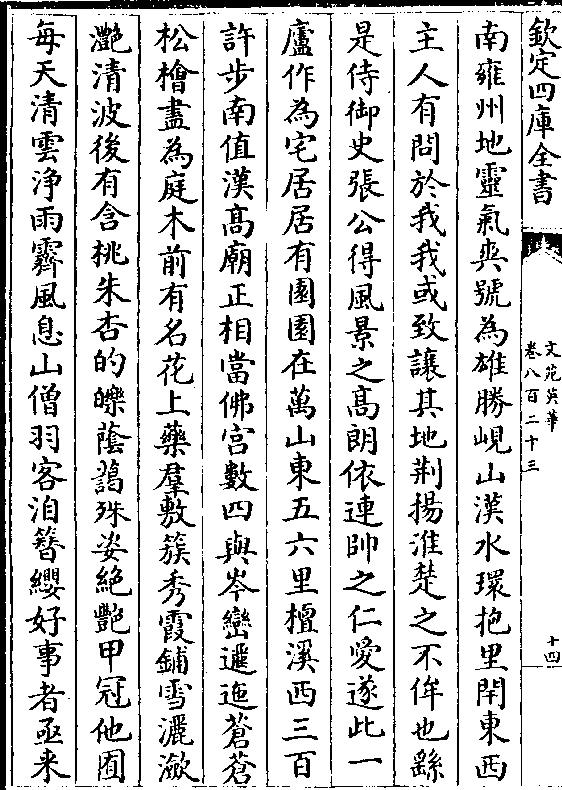 欽定四庫全書
文苑英華
卷八百二十三
十四
南雍州地靈氣爽號為雄勝峴山漢水環抱里閈東西
主人有問於我我或致讓其地荆揚淮楚之不侔也繇
是侍御史張公得風景之髙朗依連帥之仁愛遂此一
廬作為宅居居有園園在萬山東五六里檀溪西三百
許步南值漢髙廟正相當佛宫數四與岑巒邐迤蒼蒼
松檜盡為庭木前有名花上藥羣敷簇秀霞鋪雪灑潋
灔清波後有含桃朱杏的皪䕃藹殊姿絶艷甲冠他囿
每天清雲浄雨霽風息山僧羽客洎簮纓好事者亟来